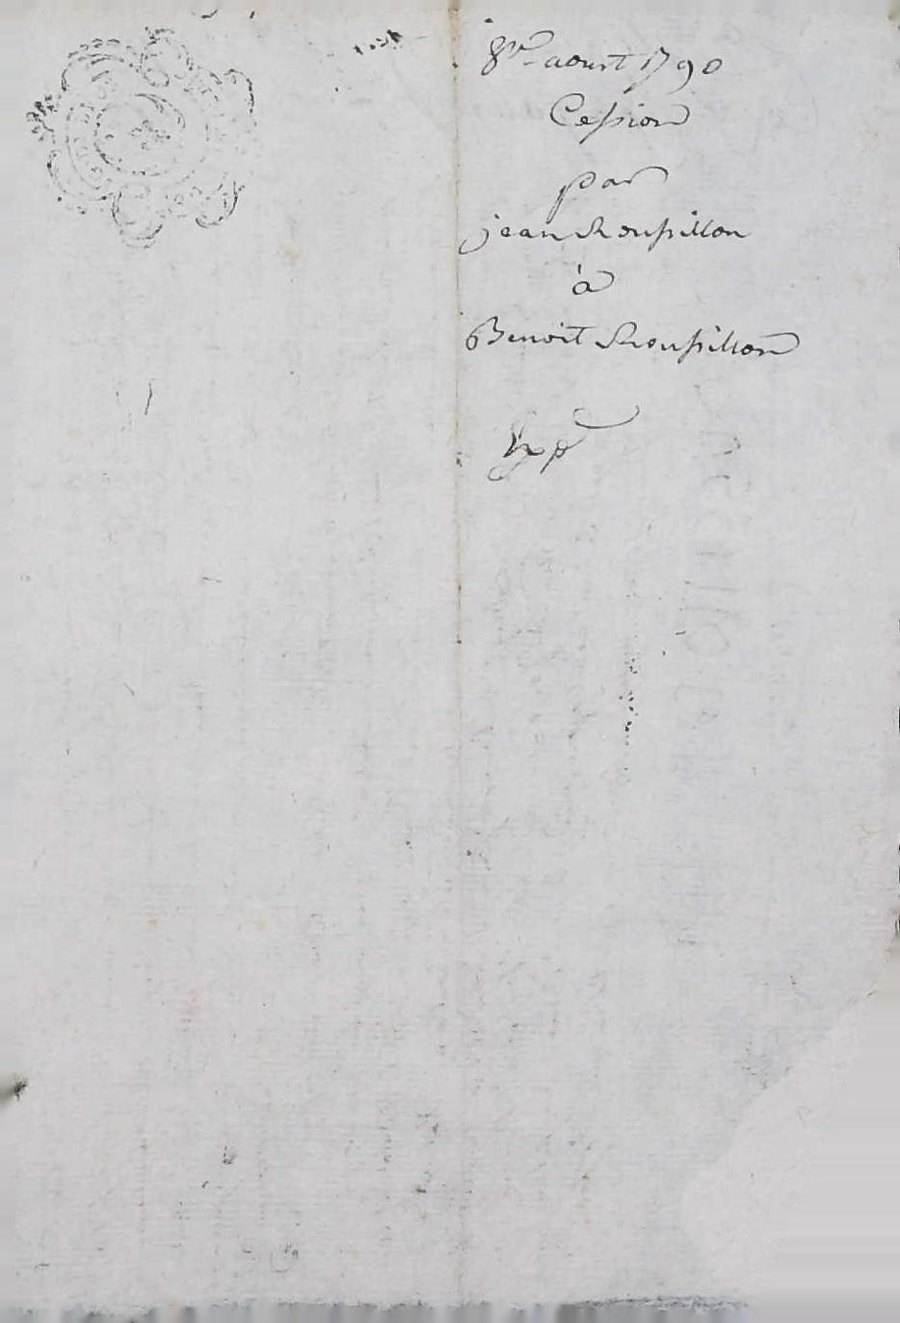 8re aoust 1790
Cession
par
jean Roussillon
à
Benoit Roussillon
Exp